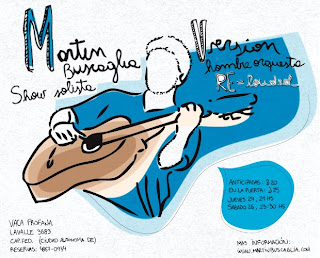 Martin
Buscaglia
Show solista
Version
hombre orquesta
RE-loaded
ANTICIPADAS: $20
EN LA PUERTA: $25
JUEVES 24, 21 HS
SABADO 26, 23:30 HS
VACA PROFANA
LAVALLE 3683
CAP. FED. (CIUDAD AUTONOMA DE)
RESERVAS: 4867-0934
MAS INFORMACIÓN:
WWW.MARTINBUSCAGLIA.COM